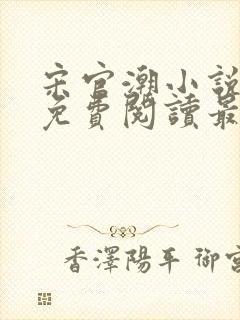 宋官潮小說
免費閱讀最
香澤陽平 御宮